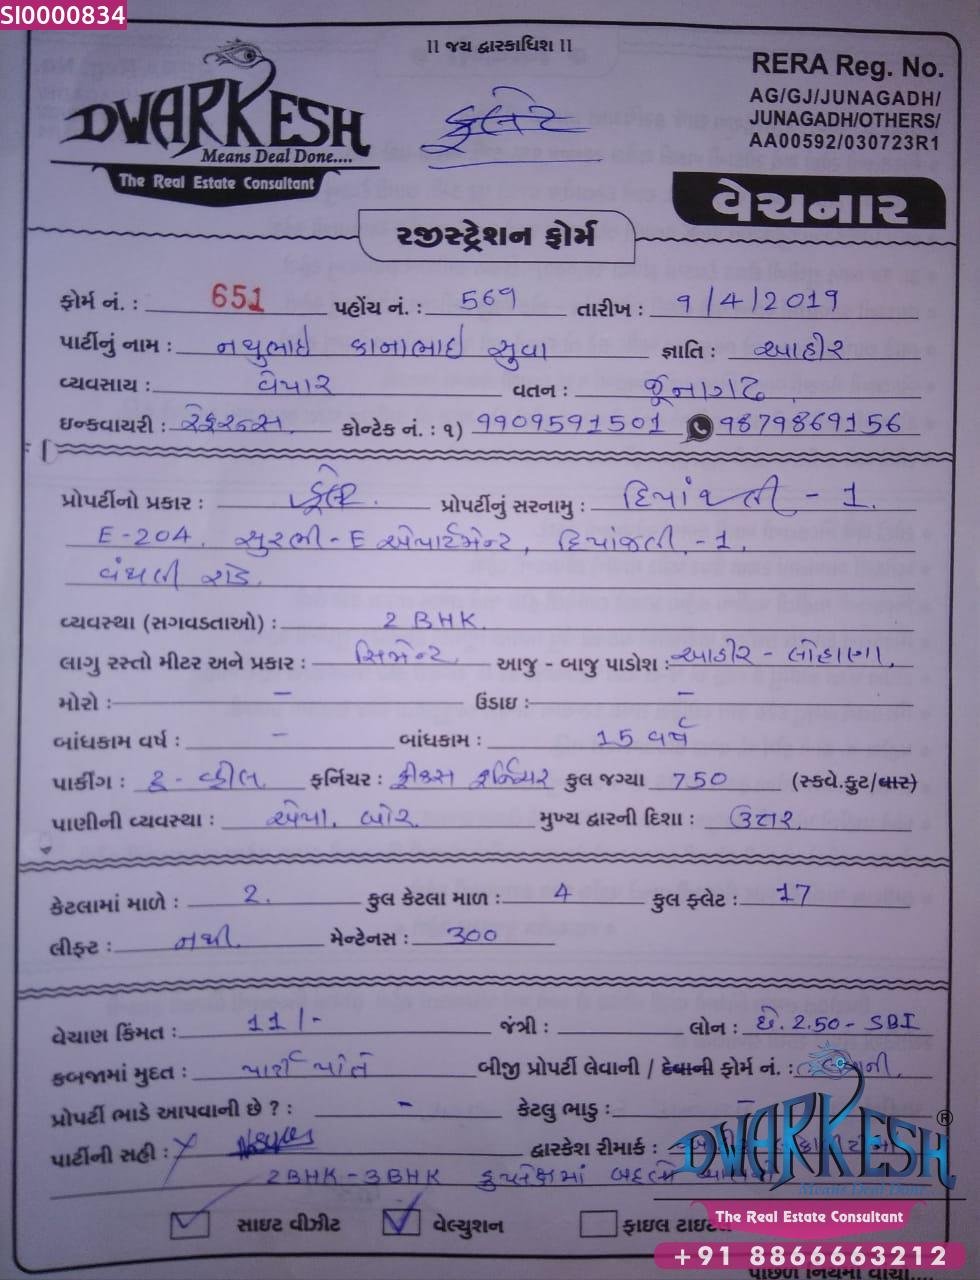 SI0000834
।। જય દ્વારકાધિશ ।।
DWARKESH
Means Deal Done....
The Real Estate Consultant
ફ્લેટ
RERA Reg. No.
AG/GJ/JUNAGADH/
JUNAGADH/OTHERS/
AA00592/030723R1
વેચનાર
રજીસ્ટ્રેશન ફોર્મ
ફોર્મ નં. : 651 પહોંચ નં. : 569 તારીખ : ૧/4/2019
પાર્ટીનું નામ : નથુભાઇ કાનાભાઇ સુવા જ્ઞાતિ : આહીર
વ્યવસાય : વેપાર વતન : જૂનાગઢ.
ઇન્કવાયરી : રેફરન્સ. કોન્ટેક નં. : ૧) 9909591501 9879869156
પ્રોપર્ટીનો પ્રકાર : ફ્લેટ. પ્રોપર્ટીનું સરનામુ : દિપાંજલી - 1.
E-204. સુરભી-E એપાર્ટમેન્ટ, દિપાંજલી.-1.
વંથલી રોડ.
વ્યવસ્થા (સગવડતાઓ) : 2 BHK.
લાગુ રસ્તો મીટર અને પ્રકાર : સિમેન્ટ. આજુ - બાજુ પાડોશ : આહીર - લોહાણા.
મોરો : - ઉંડાઇ : -
બાંધકામ વર્ષ : - બાંધકામ : 15 વર્ષ
પાર્કીંગ : ટુ - વ્હીલ. ફર્નિચર : ફીક્સ ફર્નિચર કુલ જગ્યા 750 (સ્કવે.ફુટ/વાર)
પાણીની વ્યવસ્થા : બોર. મુખ્ય દ્વારની દિશા : ઉત્તર.
કેટલામાં માળે : 2. કુલ કેટલા માળ : 4 કુલ ફ્લેટ : 17
લીફ્ટ : નથી. મેન્ટેનસ : 300
વેચાણ કિંમત : 11/- જંત્રી : લોન : છે. 2.50 - SBI
કબજામાં મુદત : બીજી પ્રોપર્ટી લેવાની / દેવાની ફોર્મ નં. :
પ્રોપર્ટી ભાડે આપવાની છે ? : - કેટલુ ભાડુ : -
પાર્ટીની સહી : દ્વારકેશ રીમાર્ક :
2BHK-3BHK ડુપ્લેક્ષમાં બદલે
સાઇટ વીઝીટ વેલ્યુશન ફાઇલ
DWARKESH ®
Means Deal Done....
The Real Estate Consultant
+91 8866663212